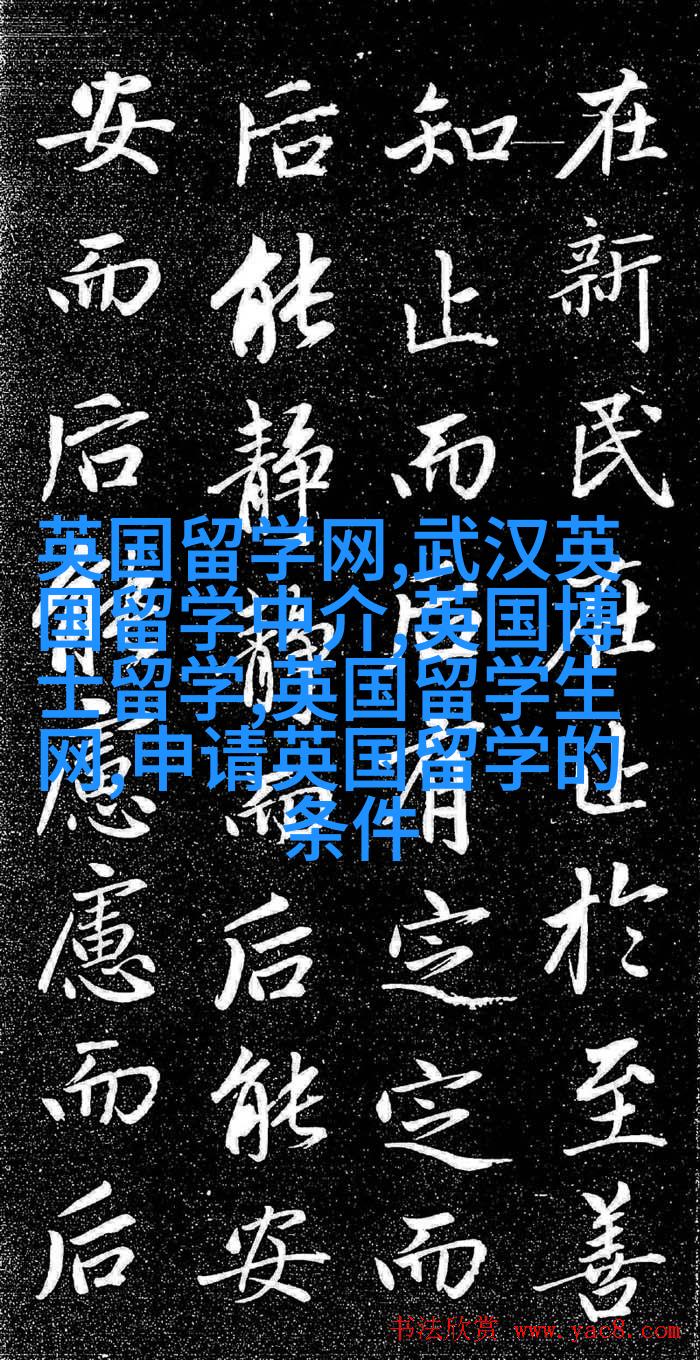 在新民在止於至善
知止而后有定定而
后能静静而后能安
安而后能慮慮而后
英国留学网,武汉英
国留学中介,英国博
士留学,英国留学生
网,申请英国留学的
条件
书法欣赏 www.yac8.com